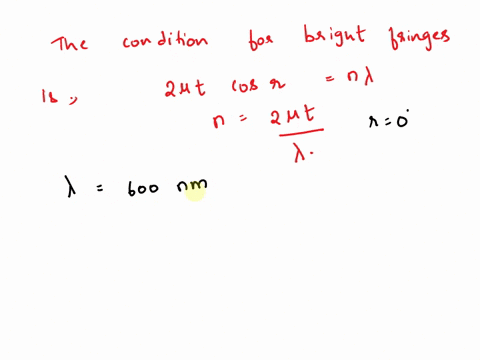 The condition for bright fringes
is, 2μt cos r = nλ
n = 2μt / λ. r = 0°
λ = 600 nm